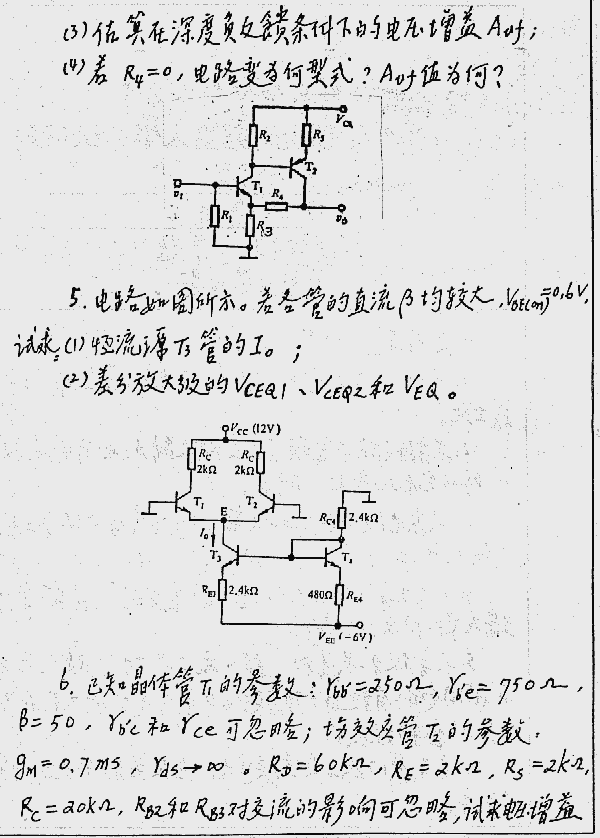 (3) 估算在深度负反馈条件下的电压增益 Avf;
(4) 若 R4=0, 电路变为何型式? Avf 值为何?
VCC
R2
R5
T1
T2
vI
R4
R1
R3
vo
5. 电路如图所示。若各管的直流β均较大, VBE(on)=0.6V,
试求:(1) 恒流源T3管的Io;
(2) 差分放大级的VCEQ1、VCEQ2和VEQ。
VCC (12V)
RC
2kΩ
RC
2kΩ
T1
E
T2
RC4
2.4kΩ
Io
T3
RE3
2.4kΩ
480Ω
RE4
VEE (-6V)
6. 已知晶体管T1的参数: rbb'=250Ω, rb'e=750Ω,
β=50, rb'c和rce可忽略; 场效应管T2的参数:
gm=0.7mS, rds→∞。RD=60kΩ, RE=2kΩ, RS=2kΩ,
RC=20kΩ, RB2和RB3对交流的影响可忽略, 试求电压增益